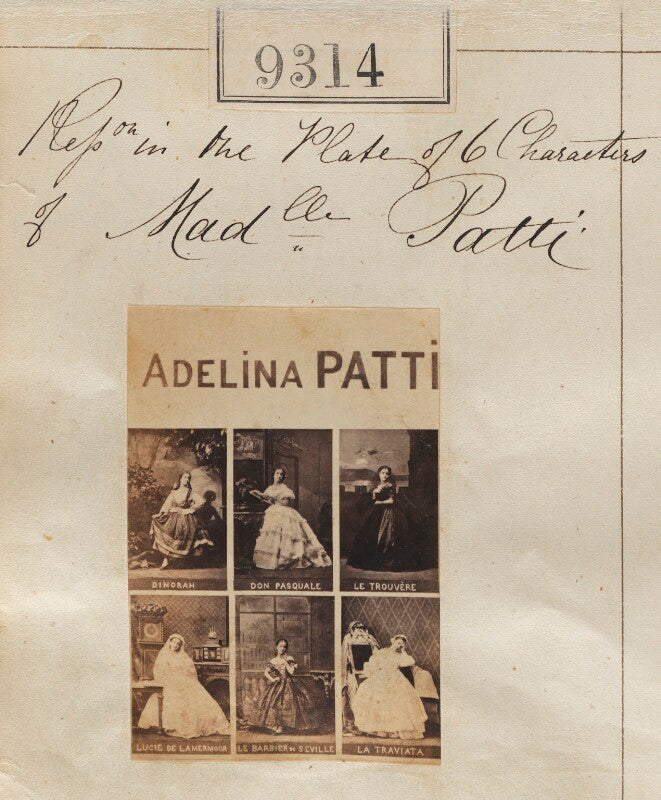 9314
Repson in the Plate of 6 Characters
of Madlle Patti
ADELiNA PATTi
DINORAH
DON PASQUALE
LE TROUVÈRE
LUCIE DE LAMERMOOR
LE BARBIER DE SEVILLE
LA TRAVIATA